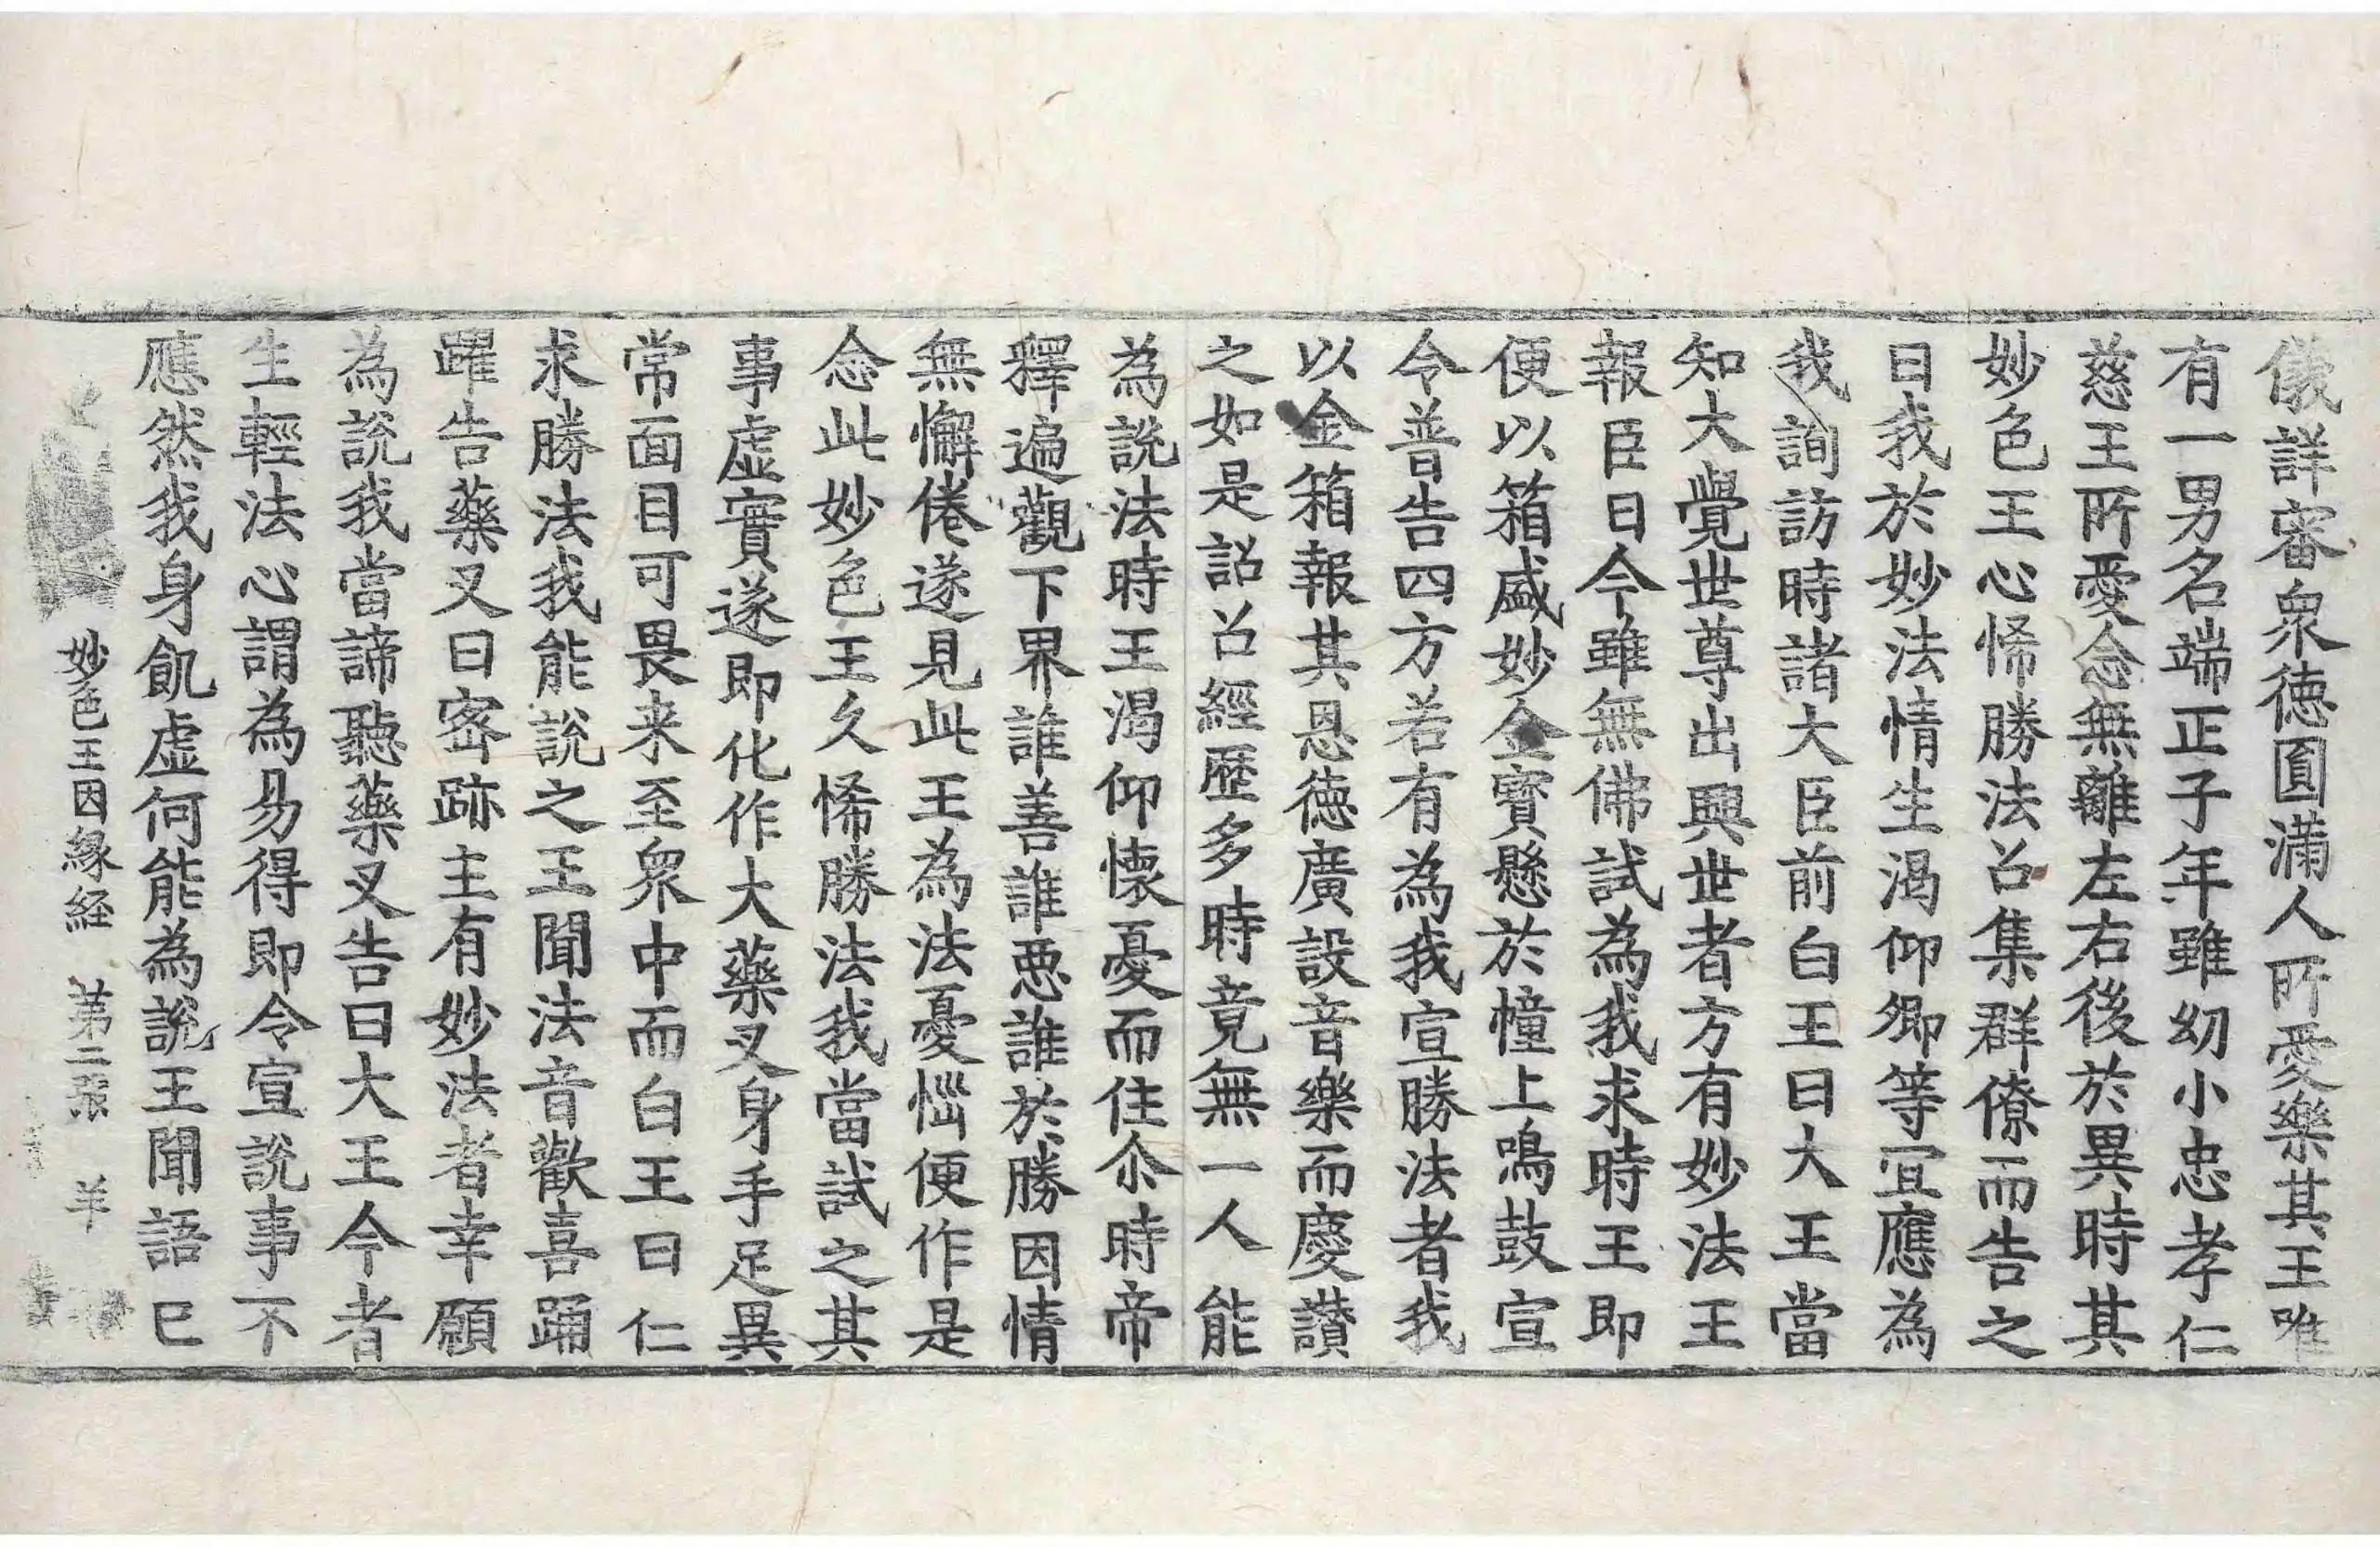 儀詳審衆德圓滿人所愛樂其王唯
有一男名端正子年雖幼小忠孝仁
慈王所愛念無離左右後於異時其
妙色王心悕勝法召集群僚而告之
曰我於妙法情生渴仰卿等宜應為
我詢訪時諸大臣前白王曰大王當
知大覺世尊出興世者方有妙法王
報臣曰今雖無佛試為我求時王即
便以箱盛妙金寶懸於幢上鳴鼓宣
令普告四方若有為我宣勝法者我
以金箱報其恩德廣設音樂而慶讃
之如是詔召經歷多時竟無一人能
為說法時王渴仰懷憂而住尒時帝
釋遍觀下界誰善誰惡誰於勝因情
無懈倦遂見此王為法憂惱便作是
念此妙色王久悕勝法我當試之其
事虛實遂即化作大藥叉身手足異
常面目可畏来至衆中而白王曰仁
求勝法我能說之王聞法音歡喜踊
躍告藥叉曰密跡主有妙法者幸願
為說我當諦聽藥叉告曰大王今者
生輕法心謂為易得即令宣說事不
應然我身飢虛何能為說王聞語已
妙色王因緣経 第二張 羊